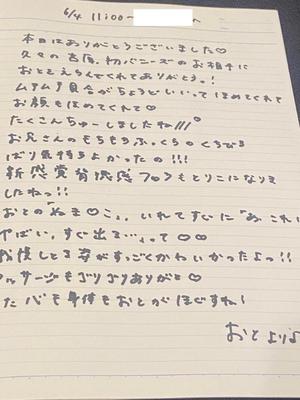 6/4 11:00〜
本日はありがとうございました♡
久々の吉原、初バニーズのお相手に
おとをえらんでくれてありがとう。!
ムチムチ具合がちょうどいいってほめてくれて
お顔もほめてくれて♡
たくさんちゅーしましたね///°
お兄さんのもちもちふっくらのくちびる
ばり気持ちよかったの!!!
新感覚 貧洗感 フロンもとりこになりま
したねっ!!
おとの「ぬま♡こ」、いれてすぐに「あ、これい
やばい、すぐ出る…」って♡♡
我慢しとる姿がすっごくかわいかったよっ!!
マッサージもごりごりありがと♡
また 心も身体もおとがほぐすね!
おとより